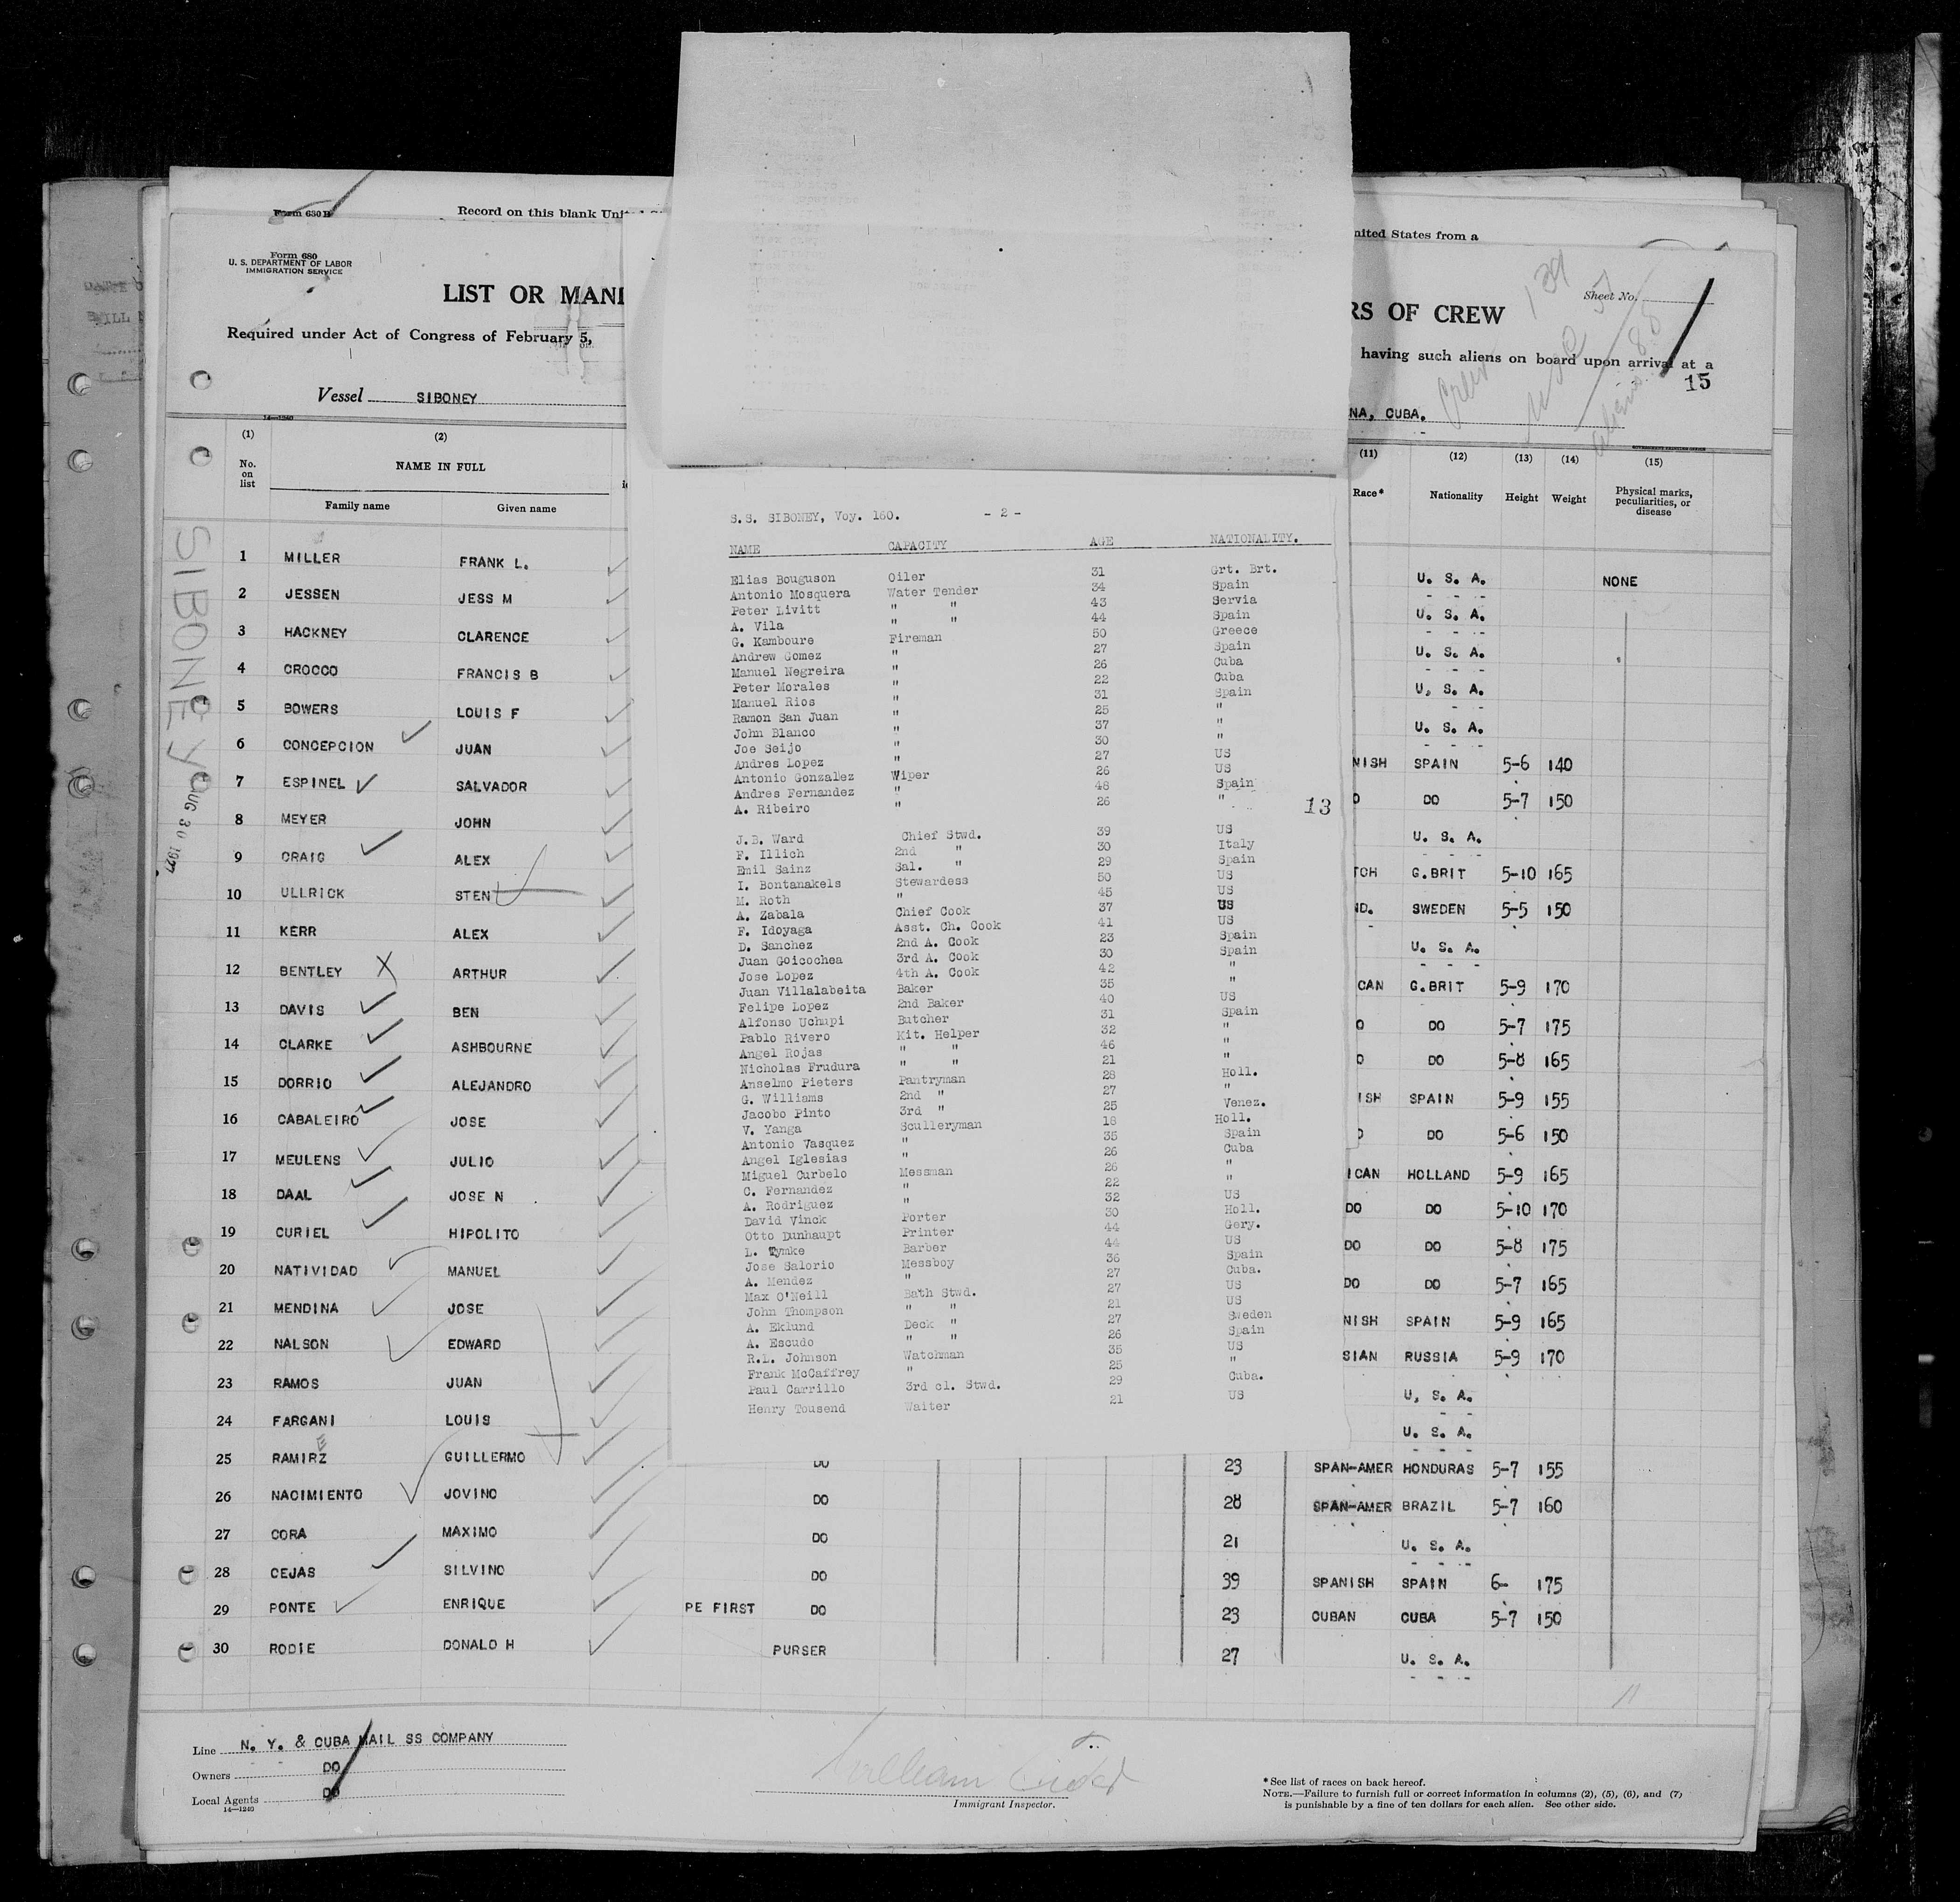 Form 630 B
Record on this blank
nited States from a
Form 680
U. S. DEPARTMENT OF LABOR
IMMIGRATION SERVICE
Sheet No.
LIST OR MANI
RS OF CREW
Required under Act of Congress of February 5,
having such aliens on board upon arrival at a
15
Vessel SIBONEY
NA, CUBA.
Crew 139
U S C 51
aliens 88
SIBONEY
AUG 30 1927
(1) (2) (11) (12) (13) (14) (15)
No. on list NAME IN FULL Race* Nationality Height Weight Physical marks, peculiarities, or disease
Family name Given name
1 MILLER FRANK L. U. S. A. NONE
2 JESSEN JESS M U. S. A.
3 HACKNEY CLARENCE U. S. A.
4 CROCCO FRANCIS B U. S. A.
5 BOWERS LOUIS F U. S. A.
6 CONCEPCION JUAN NISH SPAIN 5-6 140
7 ESPINEL SALVADOR O DO 5-7 150
8 MEYER JOHN U. S. A.
9 CRAIG ALEX TCH G.BRIT 5-10 165
10 ULLRICK STEN ND. SWEDEN 5-5 150
11 KERR ALEX U. S. A.
12 BENTLEY ARTHUR CAN G.BRIT 5-9 170
13 DAVIS BEN O DO 5-7 175
14 CLARKE ASHBOURNE O DO 5-8 165
15 DORRIO ALEJANDRO ISH SPAIN 5-9 155
16 CABALEIRO JOSE O DO 5-6 150
17 MEULENS JULIO ICAN HOLLAND 5-9 165
18 DAAL JOSE N DO DO 5-10 170
19 CURIEL HIPOLITO DO DO 5-8 175
20 NATIVIDAD MANUEL DO DO 5-7 165
21 MENDINA JOSE NISH SPAIN 5-9 165
22 NALSON EDWARD SIAN RUSSIA 5-9 170
23 RAMOS JUAN U. S. A.
24 FARGANI LOUIS U. S. A.
E
25 RAMIRZ GUILLERMO DO 23 SPAN-AMER HONDURAS 5-7 155
26 NACIMIENTO JOVINO DO 28 SPAN-AMER BRAZIL 5-7 160
27 CORA MAXIMO DO 21 U. S. A.
28 CEJAS SILVINO DO 39 SPANISH SPAIN 6- 175
29 PONTE ENRIQUE PE FIRST DO 23 CUBAN CUBA 5-7 150
30 RODIE DONALD H PURSER 27 U. S. A.
11
S.S. SIBONEY, Voy. 160. - 2 -
NAME CAPACITY AGE NATIONALITY.
Elias Bouguson Oiler 31 Grt. Brt.
Antonio Mosquera Water Tender 34 Spain
Peter Livitt " " 43 Servia
A. Vila " " 44 Spain
G. Kamboure Fireman 50 Greece
Andrew Gomez " 27 Spain
Manuel Negreira " 26 Cuba
Peter Morales " 22 Cuba
Manuel Rios " 31 Spain
Ramon San Juan " 25 "
John Blanco " 37 "
Joe Seijo " 30 "
Andres Lopez " 27 US
Antonio Gonzalez Wiper 26 US
Andres Fernandez " 48 Spain
A. Ribeiro " 26 "
13
J.B. Ward Chief Stwd. 39 US
F. Illich 2nd " 30 Italy
Emil Sainz Sal. " 29 Spain
I. Bontanakels Stewardess 50 US
M. Roth " 45 US
A. Zabala Chief Cook 37 US
F. Idoyaga Asst. Ch. Cook 41 US
D. Sanchez 2nd A. Cook 23 Spain
Juan Goicochea 3rd A. Cook 30 Spain
Jose Lopez 4th A. Cook 42 "
Juan Villalabeita Baker 35 "
Felipe Lopez 2nd Baker 40 US
Alfonso Uchupi Butcher 31 Spain
Pablo Rivero Kit. Helper 32 "
Angel Rojas " " 46 "
Nicholas Frudura " " 21 "
Anselmo Pieters Pantryman 28 Holl.
G. Williams 2nd " 27 "
Jacobo Pinto 3rd " 25 Venez.
V. Yanga Sculleryman 18 Holl.
Antonio Vasquez " 35 Spain
Angel Iglesias " 26 Cuba
Miguel Curbelo Messman 26 "
C. Fernandez " 22 "
A. Rodriguez " 32 US
David Vinck Porter 30 Holl.
Otto Dunhaupt Printer 44 Gery.
L. Tymke Barber 44 US
Jose Salorio Messboy 36 Spain
A. Mendez " 27 Cuba.
Max O'Neill Bath Stwd. 27 US
John Thompson " " 21 US
A. Eklund Deck " 27 Sweden
A. Escudo " " 26 Spain
R.L. Johnson Watchman 35 US
Frank McCaffrey " 25 "
Paul Carrillo 3rd cl. Stwd. 29 Cuba.
Henry Tousend Waiter 21 US
Line N. Y. & CUBA MAIL SS COMPANY
Owners DO
Local Agents DO
14—1240
William
Immigrant Inspector.
*See list of races on back hereof.
NOTE.—Failure to furnish full or correct information in columns (2), (5), (6), and (7)
is punishable by a fine of ten dollars for each alien. See other side.